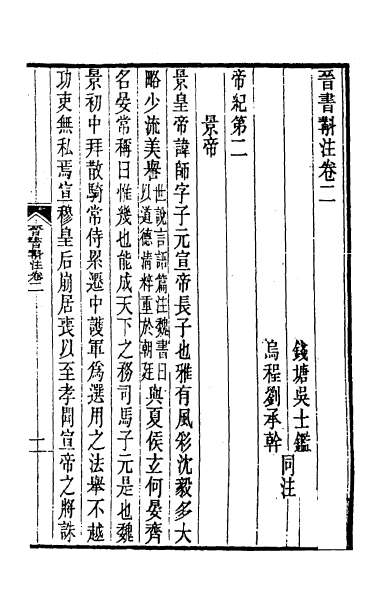 晉書斠注卷二
錢塘吳士鑑
烏程劉承幹
同注
帝紀第二
景帝
景皇帝諱師字子元宣帝長子也雅有風彩沈毅多大
略少流美譽世說言語篇注魏書曰以道德淸粹重於朝廷與夏侯玄何晏齊
名晏常稱曰惟幾也能成天下之務司馬子元是也魏
景初中拜散騎常侍累遷中護軍爲選用之法舉不越
功吏無私焉宣穆皇后崩居喪以至孝聞宣帝之將誅
晉書斠注卷二
一